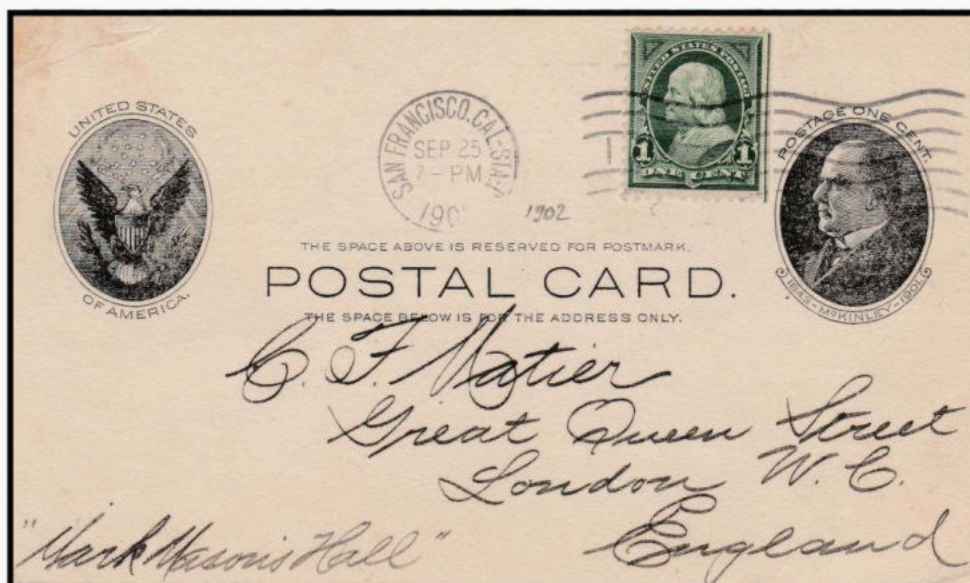 UNITED STATES
OF AMERICA.
SAN FRANCISCO, CAL.-STA.
SEP 25
7-PM
190
1902
UNITED STATES POSTAGE
1 1
ONE CENT
POSTAGE ONE CENT.
1843-McKINLEY-1901.
THE SPACE ABOVE IS RESERVED FOR POSTMARK.
POSTAL CARD.
THE SPACE BELOW IS FOR THE ADDRESS ONLY.
C. F. Matier
Great Queen Street
London W. C.
England
"Mark Mason's Hall"